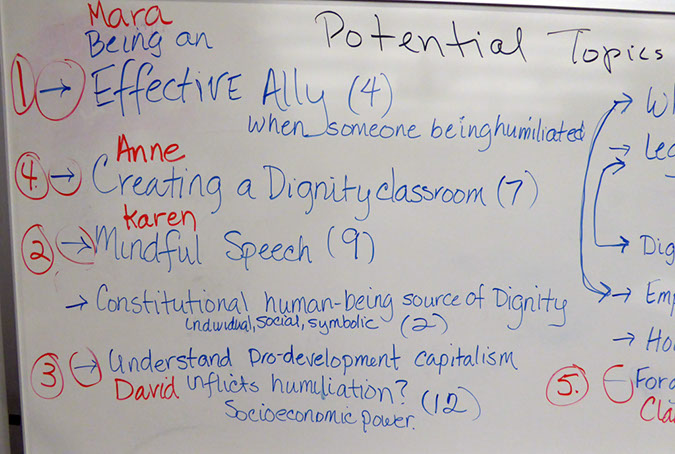 Potential Topics
Mara
Being an
1 → Effective Ally (4)
when someone being humiliated
Anne
4. → Creating a Dignity classroom (7)
Karen
2 → Mindful Speech (9)
→ Constitutional human-being source of Dignity
individual, social, symbolic (2)
3 → Understand pro-development capitalism
David inflicts humiliation? (12)
Socioeconomic power.
→
→
→ Dig
→ Emp
→ Ho
5.